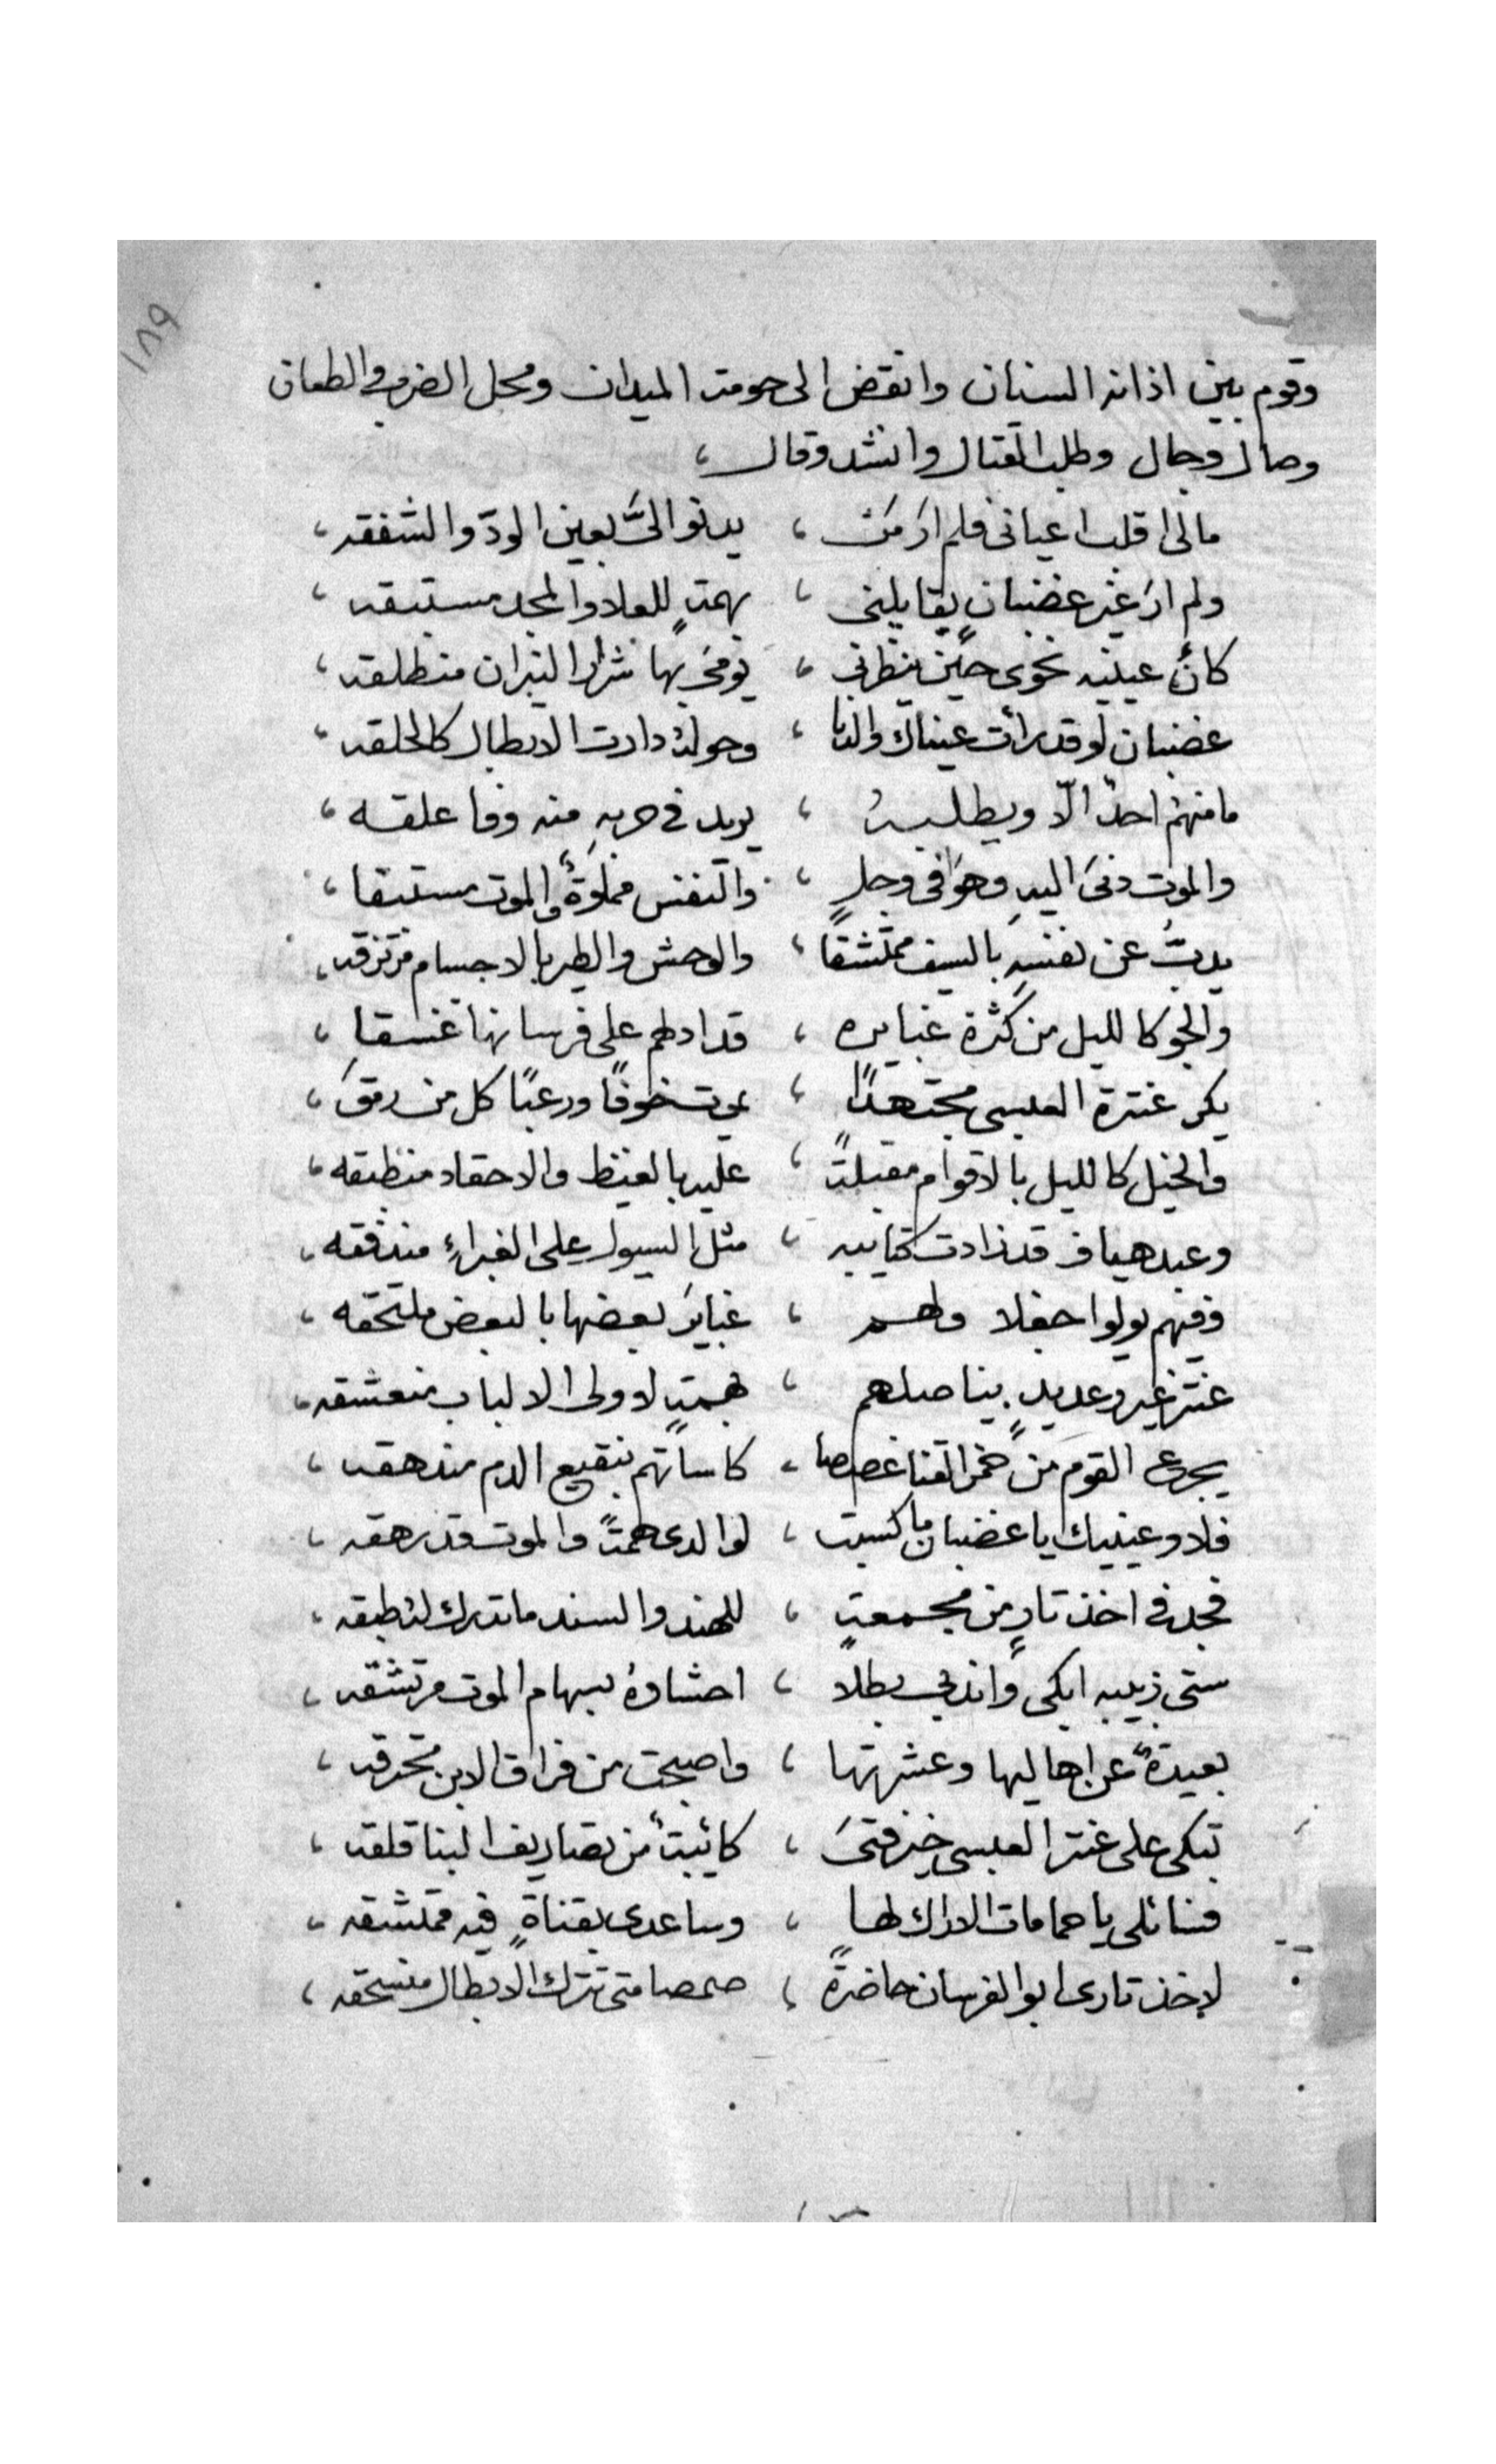 ١٨٩
وقوم بين اذانه السنان وانقض الى حومة الميدان ومحل الضرب والطعان
وصال وجال وطلب القتال وانشد وقال،
مالى اقلب اعيانى فلم ارَ مَن ، يدنوا الىَّ بعين الودّ والشفقه ،
ولم ارَ غير غضبانٍ يقابلنى ، بهمةٍ للعلا والمجد مستبقه ،
كأنّ عينيه نحوى حين ينظرنى ، يومى بها شرار النيران منطلقه ،
غضبان لو قد رأت عيناك والدنا ، وحوله دارت الابطال كالحلقه ،
ما منهمُ احدٌ الّا ويطلبهُ ، يريد فى حربهِ منه وفا علقه ،
والموت دنى اليهِ وهوَ فى وجلٍ ، والنفس مملوةٌ والموت مستبقا ،
يدبُّ عن نفسهِ بالسيف ممتشقاً ، والوحش والطير بالاجسام مرتزقه ،
والجو كالليل من كثرة غبايره ، قد ادلهم على فرسانها غسقا ،
يكر عنترة العبسى مجتهداً ، يموت خوفًا ورعبًا كل من رمقَ ،
والخيل كالليل بالاقوام مقبلةً ، عليه بالغيظ والاحقاد منطبقه ،
وعبد هياف قد زادت كتايبه ، مثل السيول على الغبراءِ مندفقه ،
وفيهم يولوا جفلا ولهم ، غبايرَ بعضها بالبعض ملتحقه ،
عنتر غير وعديدٍ يناصلهم ، بهمةٍ لاولى الالباب منعشقه ،
يجرع القوم من خمر القنا غصصا ، كاساتهم بنقيع الدم مندهقه ،
فلا وعينيك يا غضبان ما كسبت ، لوالدى همةً والموت قد رهقه ،
فجد فى اخذ تارٍ من مجمعةٍ ، للهند والسند ما تدرك لتطبقه ،
ستى زبيبه ابكى واندبى بطلا ، احشاوهُ بسهام الموت مرتشقه ،
بعيدةٌ عن اهاليها وعشرتها ، واصبحت من فراق الابن محترقه ،
تبكى على عنتر العبسى خير فتىَ ، كائبةٌ من تصاريف البنا قلقه ،
فسائلى يا حمامات الاراك لها ، وساعدى بقناةٍ فيه ممتشقه ،
لاخذ تارى ابو الفرسان حاضرةً ، صمصامتى تترك الابطال منسحقه ،